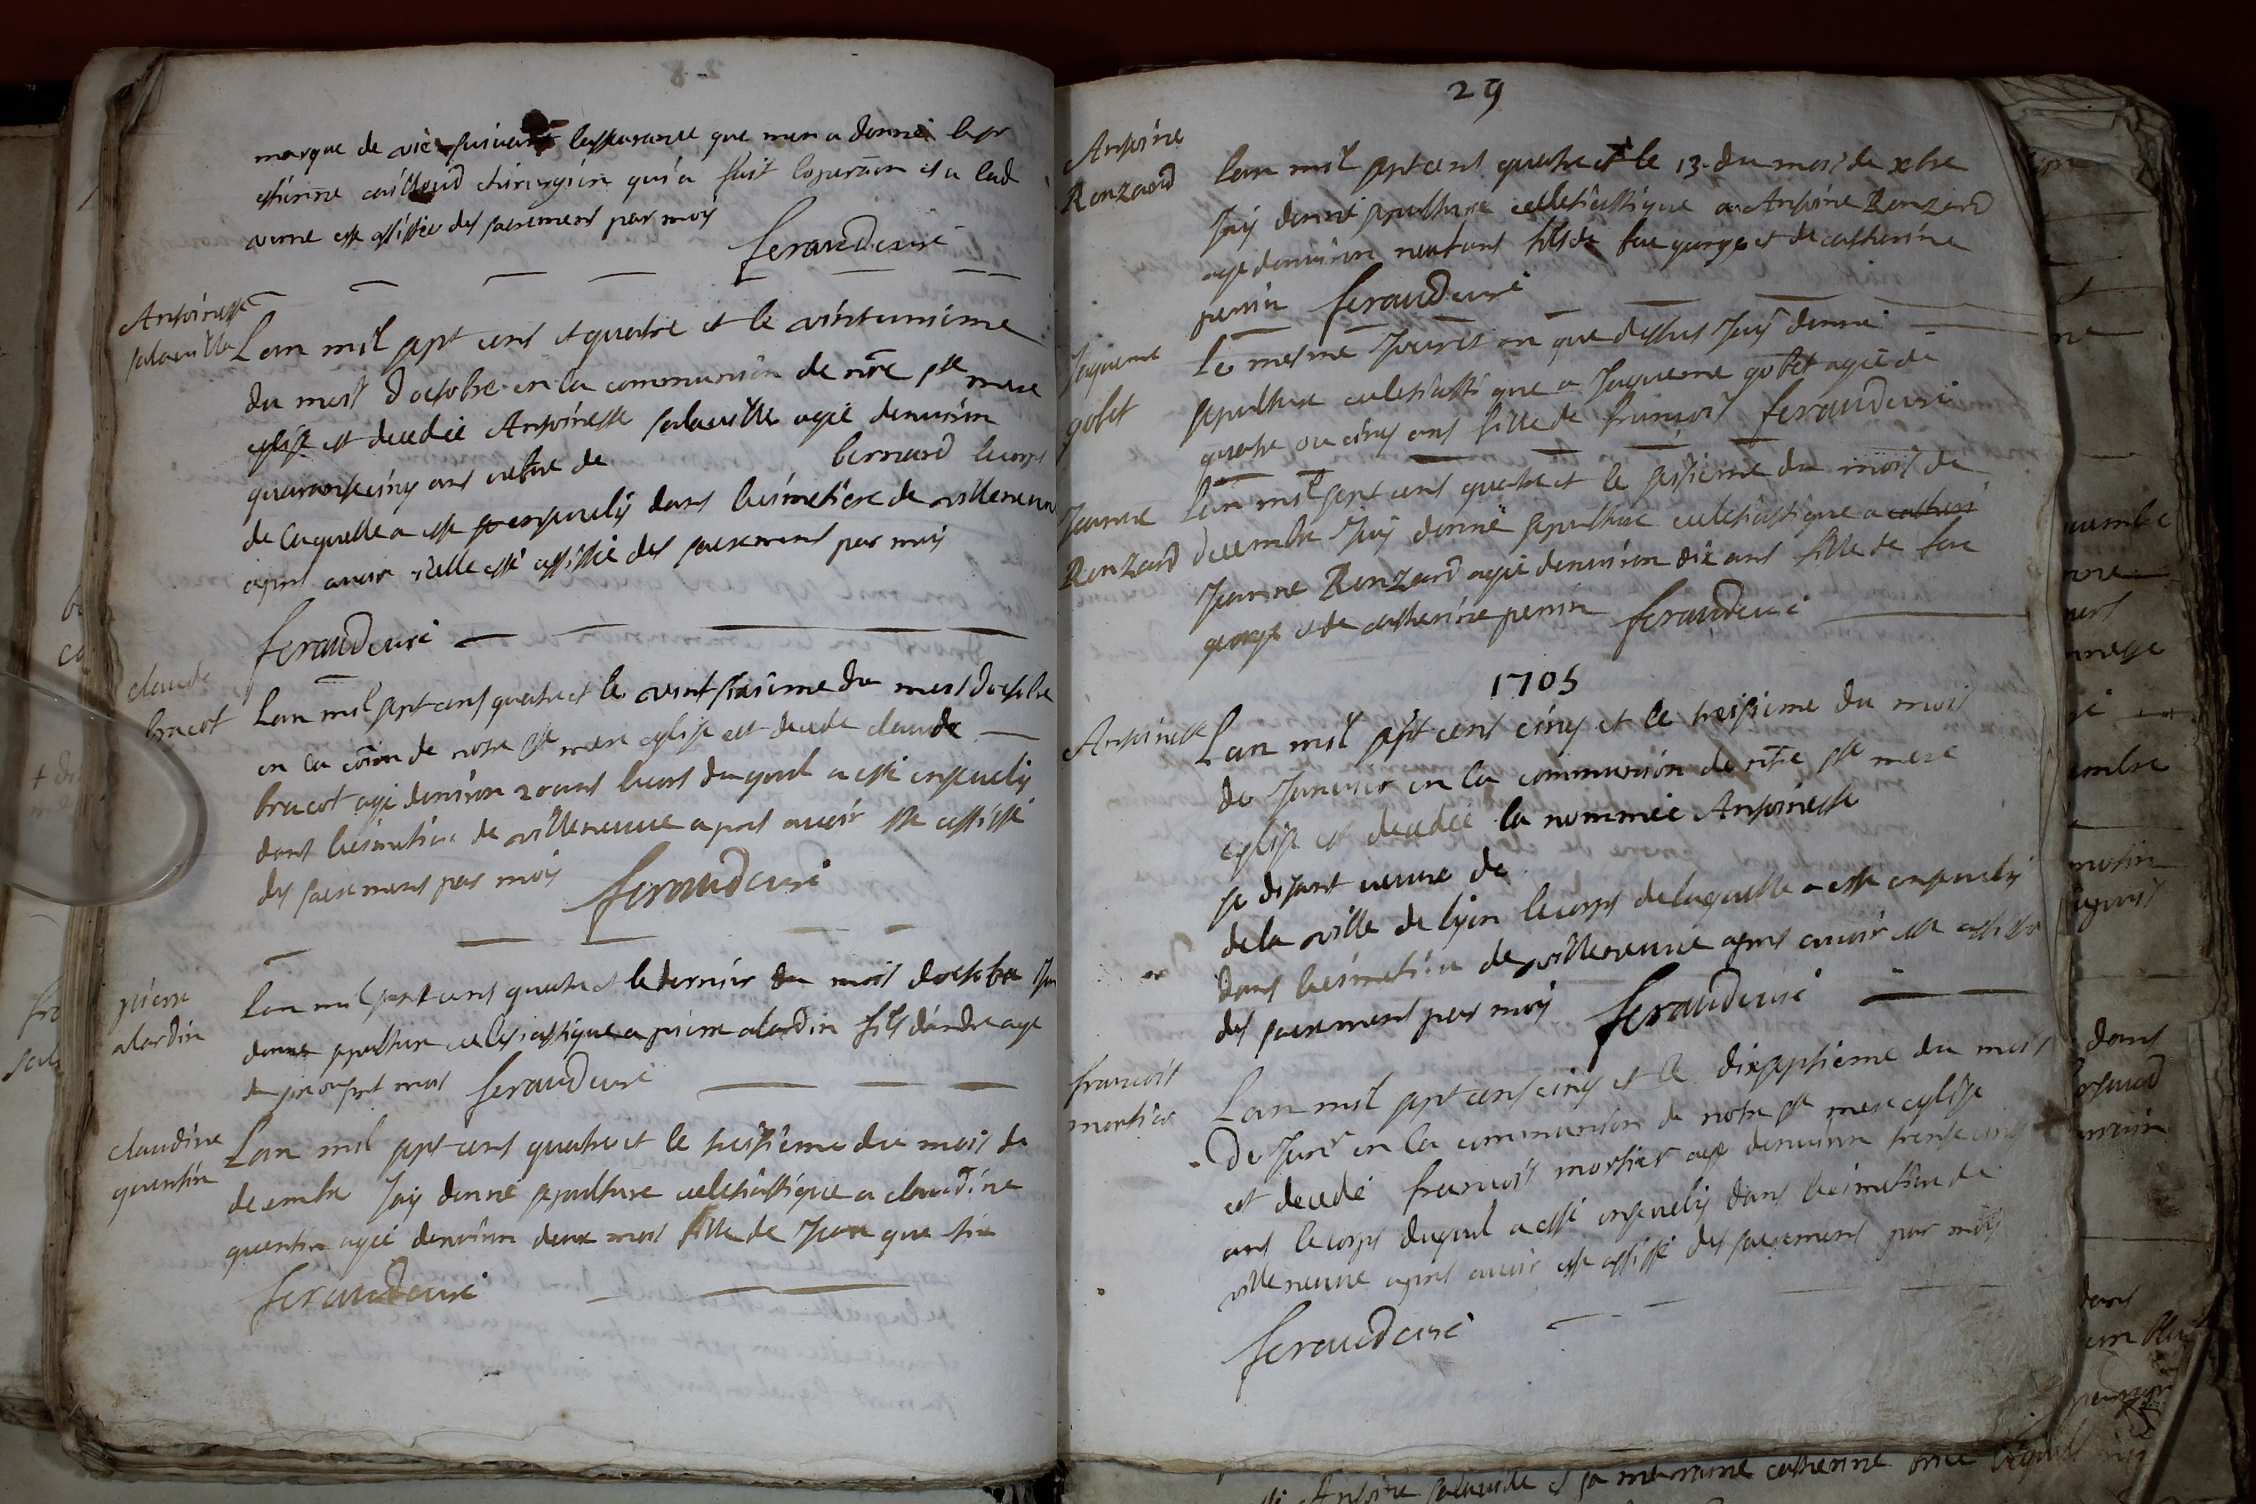 marque de vie suivant lassurance que men a donné le sr
estienne cailloud chirurgien qui a fait loperaon et a lad
avenne este assistée des sacrements par moy
feraud curé
Antoinette
salaville
Lan mil sept cens et quatre et le vintunieme
du mois doctobre en la communion de nre ste mere
eglise est decedée Antoinette salaville agée denviron
quarantecinq ans vefve de bernard le corps
de laquelle a este ensevely dans le cimetiere de villeneuve
apres avoir icelle esté assistée des sacrements par moy
feraud curé
claude
bracot
Lan mil sept cens quatre et le vint sixieme du mois doctobre
en la coion de notre ste mere eglise est decede claude
bracot agé denviron 20 ans le cors duquel a esté ensevely
dans le cimetiere de villeneuve apres avoir este assisté
des sacrements par moy feraud curé
pierre
alardin
Lan mil sept cens quatre et le dernier du mois doctobre Jay
donné sepulture ecclesiastique a pierre alardin fils dandre agé
de six ou sept mois feraud curé
claudine
quentin
Lan mil sept cens quatre et le troisieme du mois de
decembre Jay donné sepulture ecclesiastique a claudine
quentin agée denviron deux mois fille de Jean quentin
feraud curé
29
Antoine
Ronzard
Lan mil sept cens quatre et le 13. du mois de xbre
Jay donné sepulture ecclesiastique a Antoine Ronzard
age denviron neuf ans fils de feu george et de catherine
perrin feraud curé
Jaqueme
gobet
Le mesme Jour et an que dessus Jay donné
sepulture ecclesiastique a Jaqueme gobet agée de
quatre ou cinq ans fille de françois feraud curé
Jeanne
Ronzard
Lan mil sept cens quatre et le sesieme du mois de
decembre Jay donné sepulture ecclesiastique a catheri
Jeanne Ronzard agée denviron dix ans fille de feu
george et de catherine perrin feraud curé
1705
Antoinette
Lan mil sept cens cinq et le treisieme du mois
de Janvier en la communion de nre ste mere
eglise est decedée la nommée Antoinette
se disant veuve de
de la ville de lyon le corps de laquelle a este ensevely
dans le cimetiere de villeneuve apres avoir este assistée
des sacrements par moy feraud curé
francois
mortier
Lan mil sept cens cinq et le dixseptieme du mois
de Janr en la communion de notre ste mere eglise
est decedé francois mortier agé denviron trente cinq
ans le corps duquel a esté ensevely dans le cimetiere de
villeneuve apres avoir este assisté des sacrements par moy
feraud curé